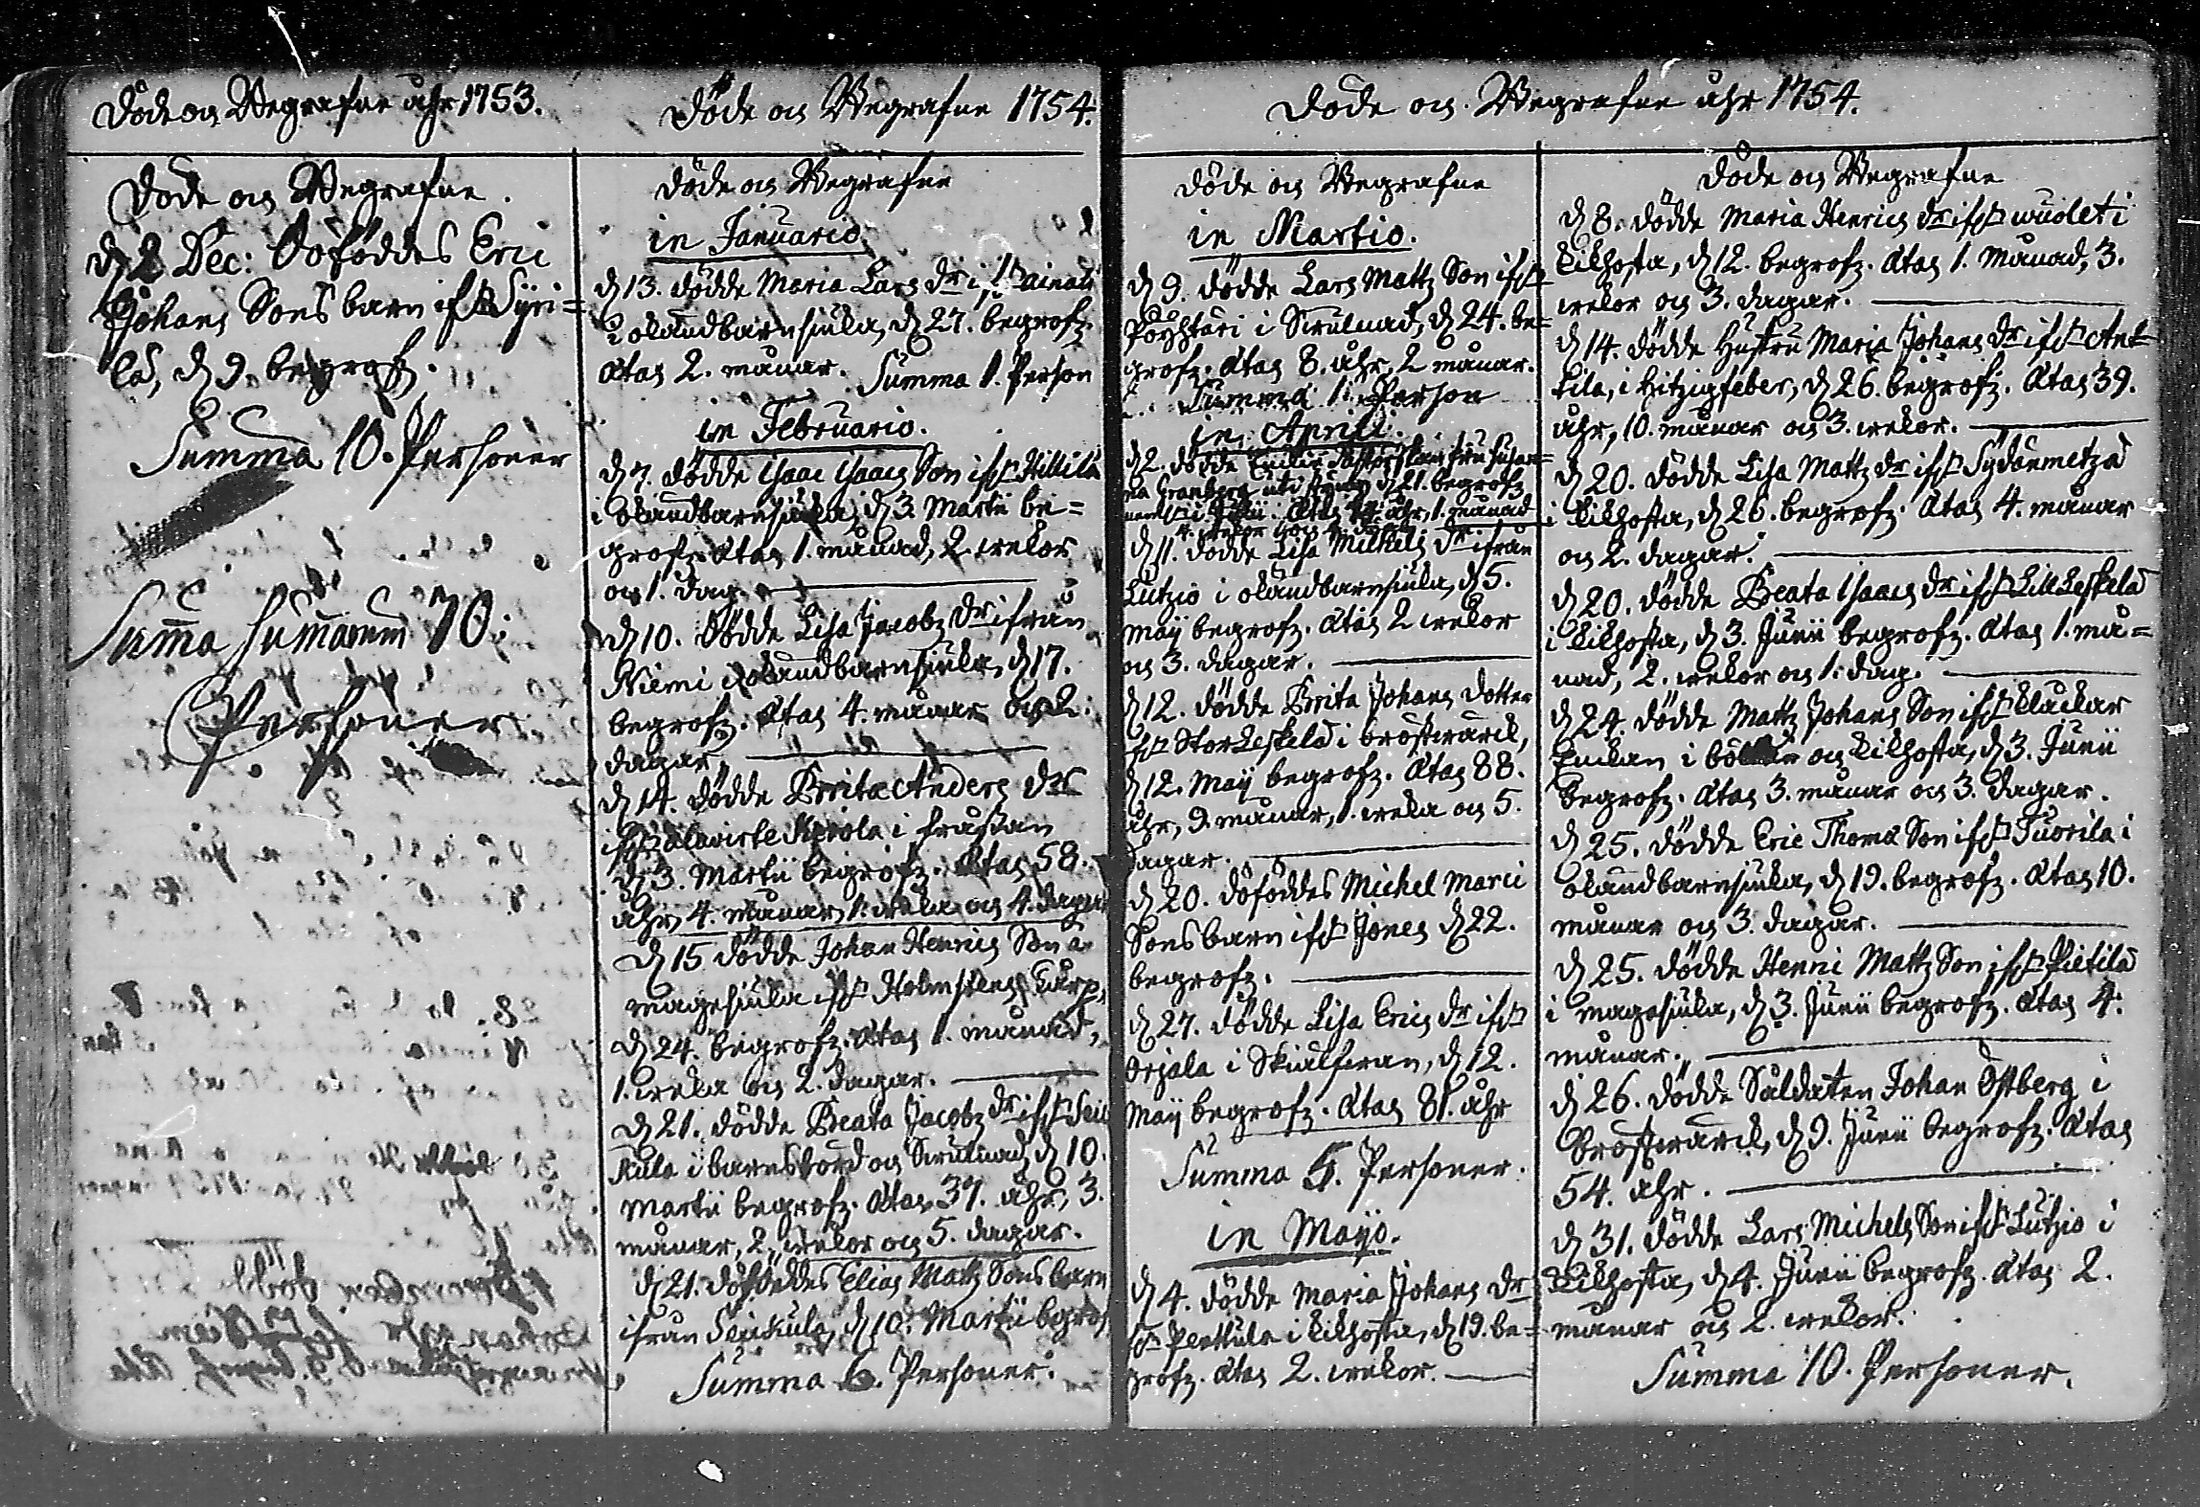 Döde och Begrafne åhr 1753.
Döde och Begrafne.
d. 2 Dec: dödföddes Eric
Johans Sons barn ifr. Syri=
lä, d. 9. begrafz.
Summa 10. Personer
Suma sumarum 70:
Personer
Döde och Begrafne 1754.
Döde och Begrafne
in Januario.
d. 13. dödde Maria Lars dr ifr. ainali
i okändbarnsiuka, d. 27. begrofz.
ætas 2. månar. Summa 1. Person
in Februario.
d. 7. dödde Isaac Isaacs Son ifr. Hillilä
i okändbarnsiuka, d. 3. Martii be=
grofz. ætas 1. månad, 2. wekor
och 1. dag.
d. 10. dödde Lisa Jacobz dr ifrån
Niemi i okändbarnsiuka, d. 17.
begrofz. ætas 4. månar och 2.
dagar.
d. 14. dödde Brita Anders dr
ifr. Kerola i frassan
d. 3. Martii begrofz. ætas 58.
åhr, 4. månar, 1. weka och 4. dagar
d. 15. dödde Johan Henrics Son a
magesiuka ifr. Holmstens Torp,
d. 24. begrofz. ætas 1. månad,
1. weka och 2. dagar.
d. 21. dödde Beata Jacobz dr ifr. Seic
kula i barnsbörd och Swullnad, d. 10.
Martii begrofz. ætas 37. åhr, 3.
månar, 2. wekor och 5. dagar.
d. 21. dödföddes Elias Mattz Sons barn
ifrån Seickula, d. 10. Martii begrof.
Summa 6. Personer.
Döde och Begrafne åhr 1754.
Döde och Begrafne
in Martio.
d. 9. dödde Lars Mattz Son ifr.
Pöyhtäri i Swulnad, d. 24. be=
grofz. ætas 8. åhr, 2 månar.
Summa 1. Person
in Aprili.
d. 2. dödde fru Susan=
na d. 21. begrofz
åhr, 1. månad
d. 11. dödde Lisa Michels dr ifrån
Lutzio i okändbarnsiuka, d. 5.
Maij begrofz. ætas 2 wekor
och 3. dagar.
d. 12. dödde Brita Johans dotter
ifr. Storleskelä i bröstwärck,
d. 12. Maij begrofz. ætas 88.
åhr, 9. månar, 1. weka och 5.
dagar.
d. 20. dödföddes Michel Marci
Sons barn ifr. Jones d. 22.
begrofz.
d. 27. dödde Lisa Erics dr ifr.
Orjala i Skiälfwan, d. 12.
Maij begrofz. ætas 81. åhr
Summa 5. Personer.
in Mayo.
d. 4. dödde Maria Johans dr
ifr. Perttula i kikhosta, d. 19. be=
grofz. ætas 2. wekor.
Döde och Begrafne
d. 8. dödde Maria Henrics dr ifr. Wuoleti
kikhosta, d. 12. begrofz. ætas 1. Månad, 3.
wekor och 3. dagar.
d. 14. dödde Hustru Maria Johans dr ifr. Ant
tila, i hitzigfeber, d. 26. begrofz. ætas 39.
åhr, 10. månar och 3. wekor.
d. 20. dödde Lisa Mattz dr ifr. Sydänmetzä
i kikhosta, d. 26. begrofz. ætas 4. månar
och 2. dagar.
d. 20. dödde Beata Isaacs dr ifr. Lilleskelä
i kikhosta, d. 3. Junii begrofz. ætas 1. må=
nad, 2. wekor och 1. dag.
d. 24. dödde Mattz Johans Son ifr. klåckar
Enkan i och kikhosta, d. 3. Junii
begrofz. ætas 3. månar och 3. dagar.
d. 25. dödde Eric Thomæ Son ifr. Tuorila i
okändbarnsiuka, d. 19. begrofz. ætas 10.
månar och 3. dagar.
d. 25. dödde Henric Mattz Son ifr. Pietilä
i magesiuka, d. 3. Junii begrofz. ætas 4.
månar.
d. 26. dödde Saldaten Johan Östberg i
bröstwärck, d. 9. Junii begrofz. ætas
54. åhr.
d. 31. dödde Lars Michels Son ifr. Lutzio i
kikhosta, d. 4. Junii begrofz. ætas 2.
månar och 2. wekor.
Summa 10. Personer.